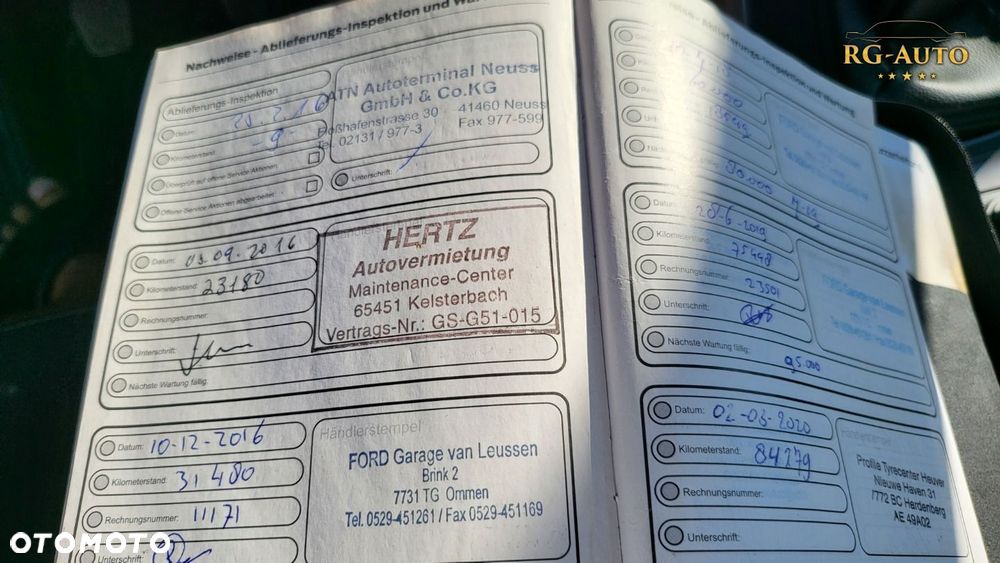 Nachweise - Ablieferungs-Inspektion und
Ablieferungs-Inspektion
Datum: 25.2.16
Kilometerstand: -9-
Überprüft auf offene Service Aktionen
Offene Service Aktionen abgearbeitet:
ATN Autoterminal Neuss
GmbH & Co.KG
Floßhafenstrasse 30 41460 Neuss
Tel. 02131 / 977-3 Fax 977-599
Unterschrift:
Datum: 03.09.2016
Kilometerstand: 23180
Rechnungsnummer:
Unterschrift:
Nächste Wartung fällig:
Händlerstempel
HERTZ
Autovermietung
Maintenance-Center
65451 Kelsterbach
Vertrags-Nr.: GS-G51-015
Datum: 10-12-2016
Kilometerstand: 31480
Rechnungsnummer: 11171
Unterschrift:
Händlerstempel
FORD Garage van Leussen
Brink 2
7731 TG Ommen
Tel. 0529-451261 / Fax 0529-451169
Ablieferungs-Inspektion und Wartung
FORD
Datum: 25-6-2019
Kilometerstand: 75448
Rechnungsnummer: 23501
Unterschrift:
Nächste Wartung fällig: 95.000
FORD Garage van Leussen
Datum: 02-03-2020
Kilometerstand: 84279
Rechnungsnummer:
Unterschrift:
Händlerstempel
Profile Tyrecenter Heuver
Nieuwe Haven 31
7772 BC Hardenberg
AE 49A02
RG-AUTO
OTOMOTO